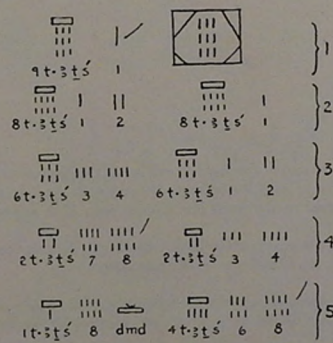 9 t.ꜣ ṯ ś 1 } 1
8 t.ꜣ ṯ ś 1 2 8 t.ꜣ ṯ ś 1 } 2
6 t.ꜣ ṯ ś 3 4 6 t.ꜣ ṯ ś 1 2 } 3
2 t.ꜣ ṯ ś 7 8 2 t.ꜣ ṯ ś 3 4 } 4
1 t.ꜣ ṯ ś 8 dmd 4 t.ꜣ ṯ ś 6 8 } 5